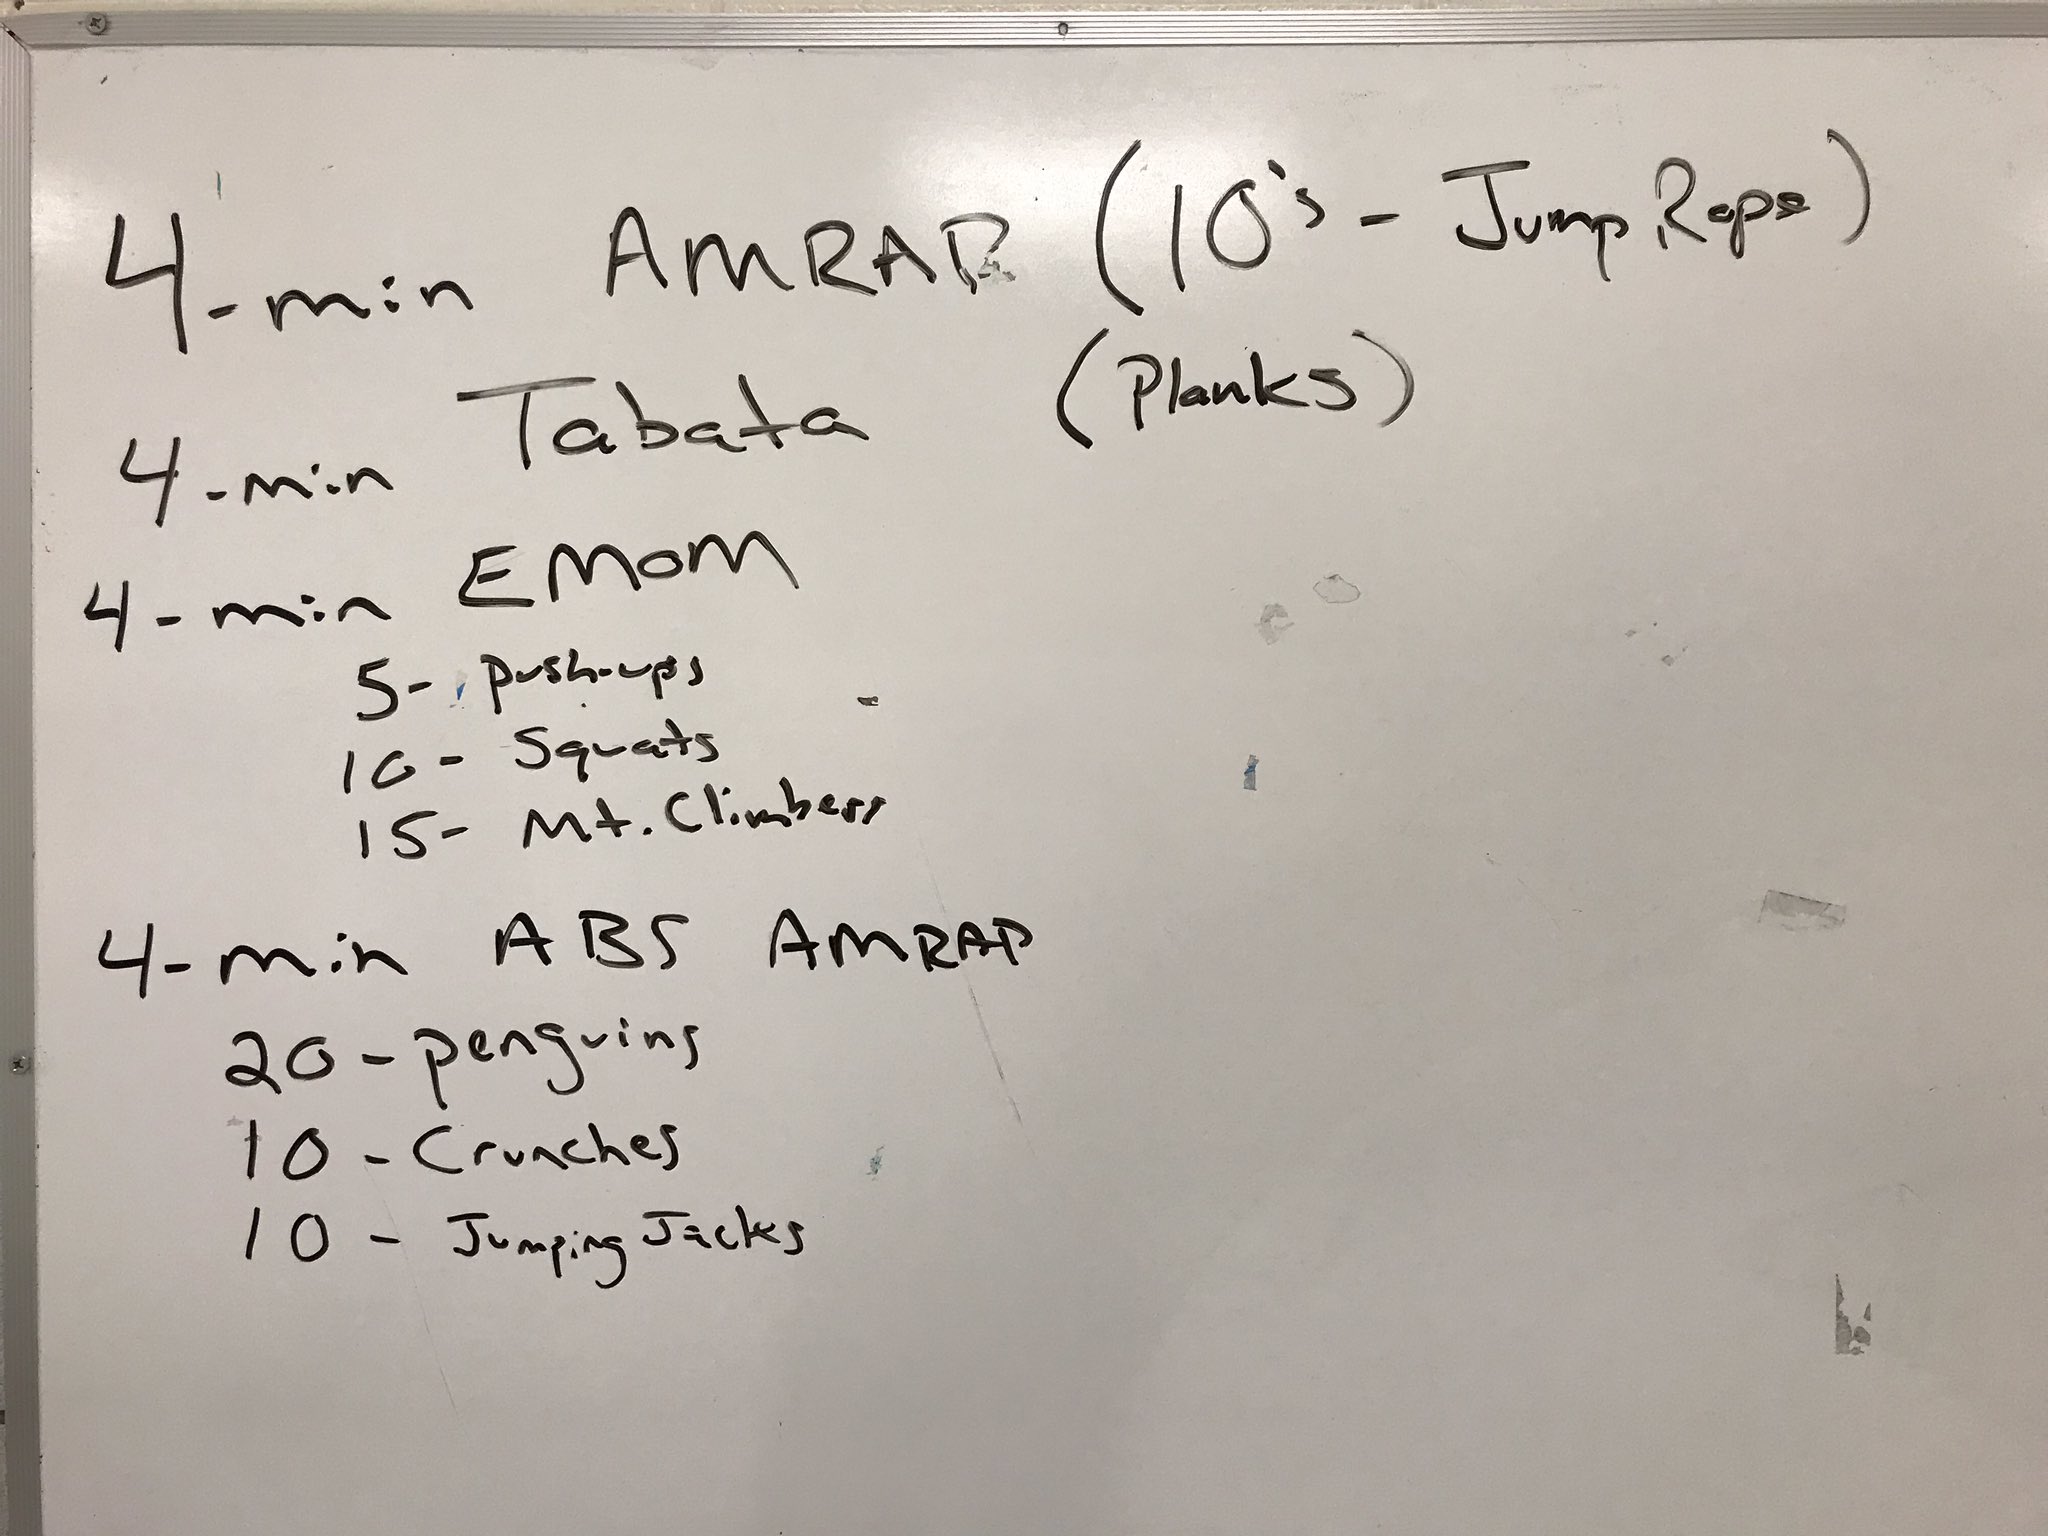 4-min AMRAP (10's - Jump Rope)
4-min Tabata (Planks)
4-min EMOM
5- Push-ups
10- Squats
15- Mt. Climbers
4-min ABS AMRAP
20-penguins
10-Crunches
10- Jumping Jacks